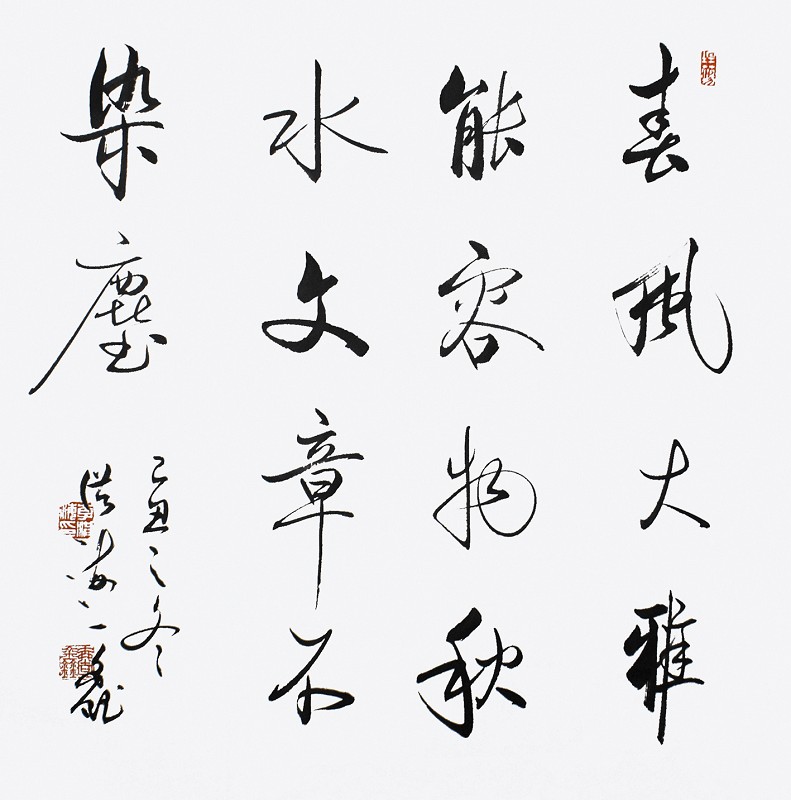 春風大雅
能容物秋
水文章不
染塵
己丑之冬